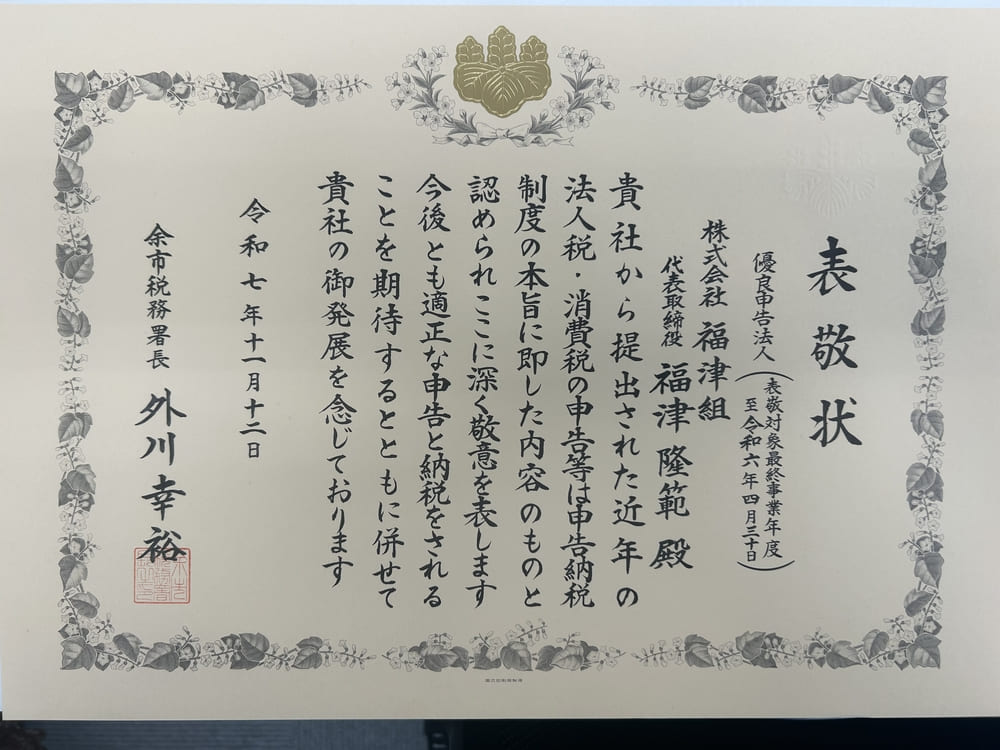 表敬状
優良申告法人(表敬対象最終事業年度
至令和六年四月三十日)
株式会社 福津組
代表取締役 福津隆範殿
貴社から提出された近年の
法人税・消費税の申告等は申告納税
制度の本旨に即した内容のものと
認められここに深く敬意を表します
今後とも適正な申告と納税をされる
ことを期待するとともに併せて
貴社の御発展を念じております
令和七年十一月十二日
余市税務署長 外川幸裕